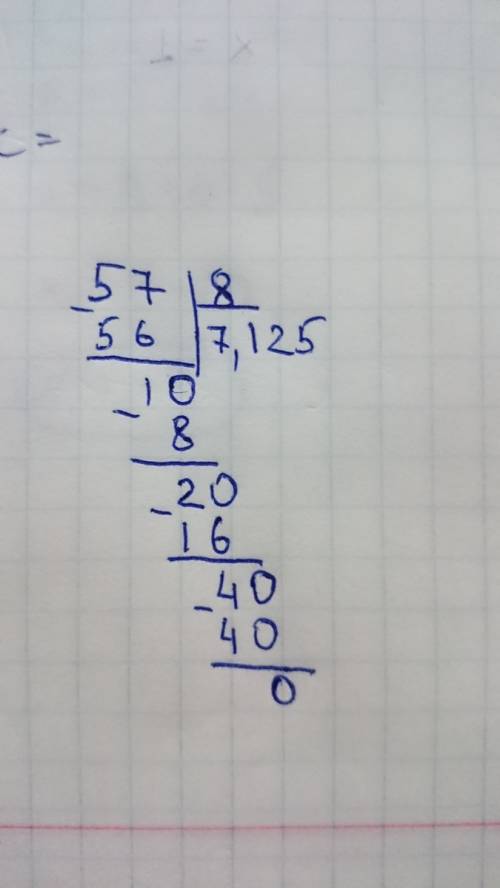 57 8
- 56 7,125
10
- 8
- 20
16
- 40
40
0